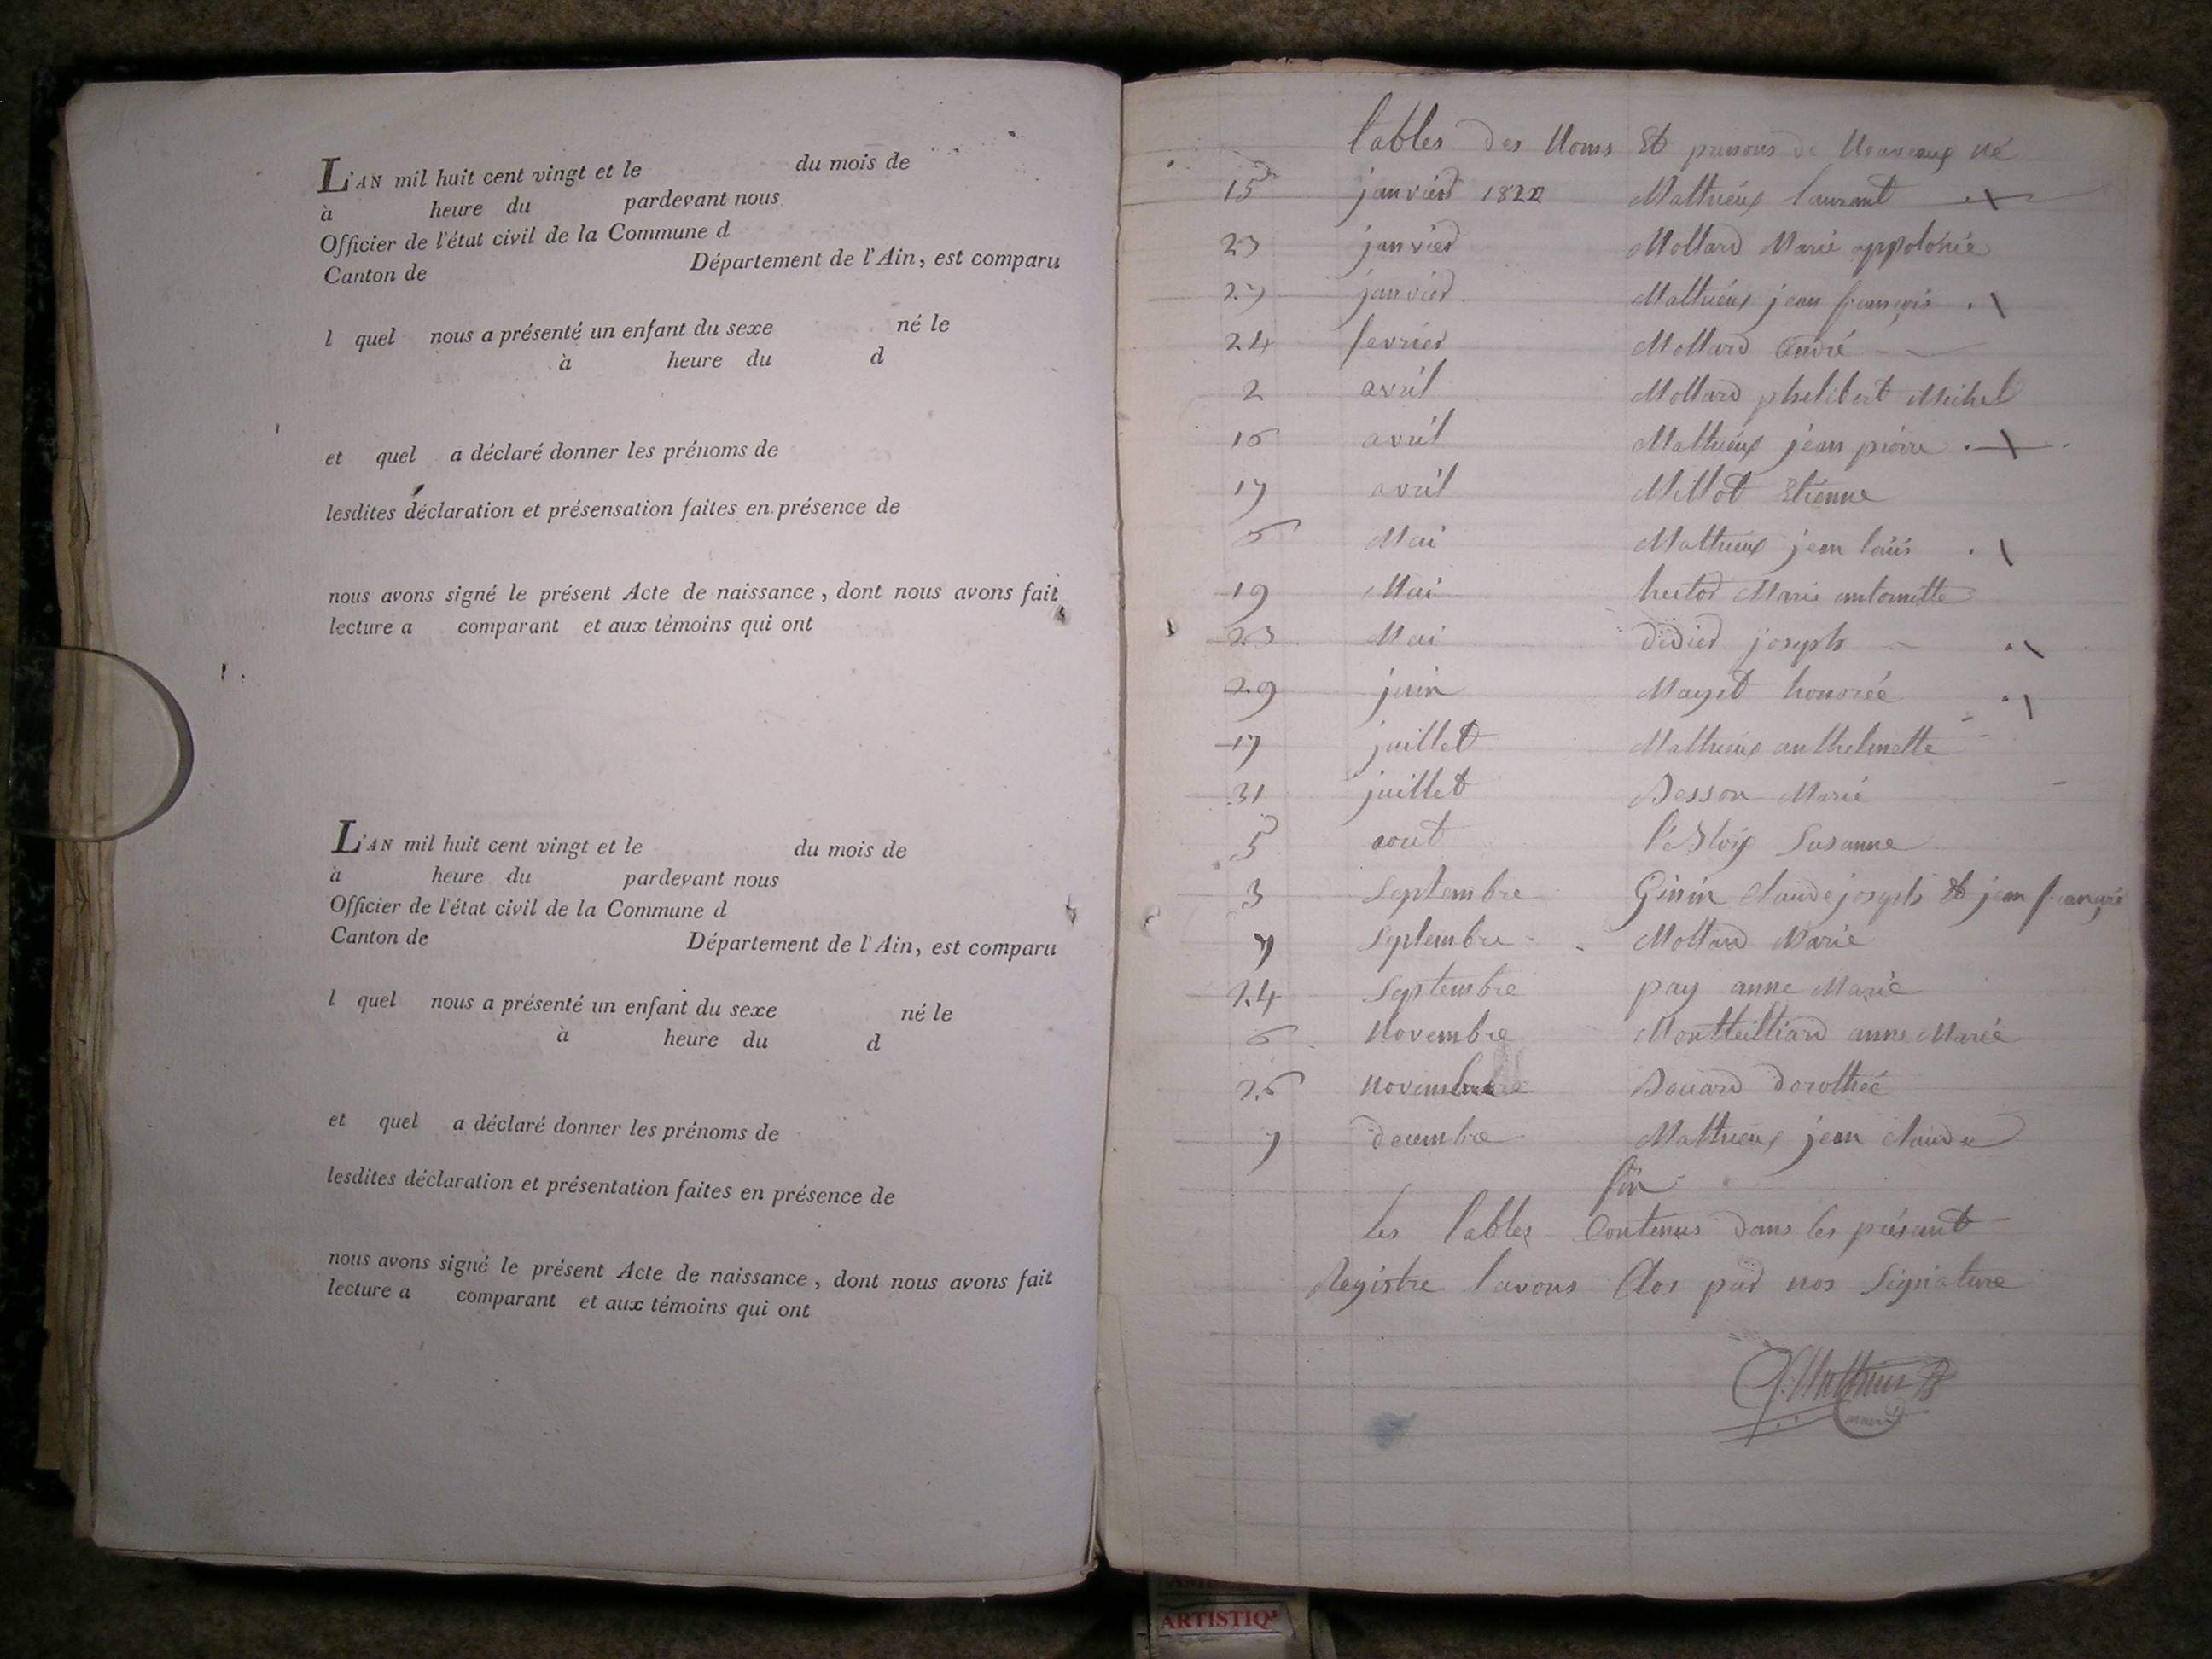 L'AN mil huit cent vingt et le du mois de
à heure du pardevant nous
Officier de l'état civil de la Commune d
Canton de Département de l'Ain, est comparu
l quel nous a présenté un enfant du sexe né le
à heure du d
et quel a déclaré donner les prénoms de
lesdites déclaration et présensation faites en présence de
nous avons signé le présent Acte de naissance, dont nous avons fait
lecture a comparant et aux témoins qui ont
L'AN mil huit cent vingt et le du mois de
à heure du pardevant nous
Officier de l'état civil de la Commune d
Canton de Département de l'Ain, est comparu
l quel nous a présenté un enfant du sexe né le
à heure du d
et quel a déclaré donner les prénoms de
lesdites déclaration et présentation faites en présence de
nous avons signé le présent Acte de naissance, dont nous avons fait
lecture a comparant et aux témoins qui ont
tables des Noms Et prenons de Nouveaux né
15 janvier 1822 Mathieux laurant
23 janvier Mollard Marie appolonie
27 janvier Mathieux jean françois
24 fevrier Mollard André
2 avril Mollard phelibert Michel
16 avril Mathieux jean pierre
17 avril Millot Etienne
6 Mai Mathieux jean louis
19 Mai hector Marie antoinette
23 Mai didier joseph
29 juin Mayet honorée
17 juillet Mathieux anthelmette
31 juillet Besson Marie
5 aout Susanne
3 Septembre Ginin Claude joseph Et jean françois
7 Septembre Mollard Marie
24 Septembre pay anne Marie
6 Novembre Montteilliard anne Marie
26 novembre Bouard dorothée
7 decembre Mathieux jean claude
fin
les tables Contenus dans les présant
Registre lavons Clos par nos Signature
Mathieux
maire
ARTISTIQ